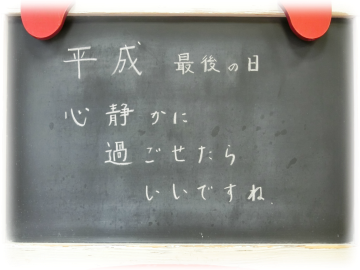 平成 最後の日
心静かに
過ごせたら
いいですね